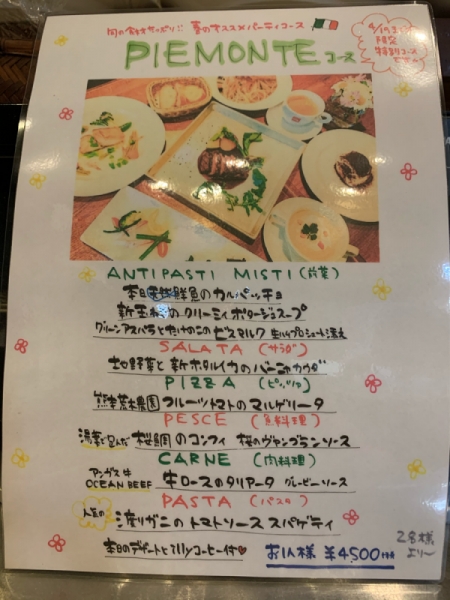 旬の食材たっぷり!! 春のオススメパーティコース
PIEMONTE コース
4/19まで
限定
特別コース
です
ANTIPASTI MISTI (前菜)
本日鮮魚のカルパッチョ
新玉ねぎのクリーミィポタージュスープ
グリーンアスパラとたけのこのビスマルク 生ハムプロシュート添え
SALATA (サラダ)
地野菜と新ホタルイカのバーニャカウダ
PIZZA (ピッツァ)
熊本荒木農園フルーツトマトのマルゲリータ
PESCE (魚料理)
桜鯛のコンフィ 桜のヴァンブランソース
CARNE (肉料理)
アンガス牛
OCEAN BEEF 牛ロースのタリアータ グレービーソース
PASTA (パスタ)
人気の 渡りガニのトマトソース スパゲティ
本日のデザートとillyコーヒー付♥
お1人様 ¥4,500
2名様
より〜